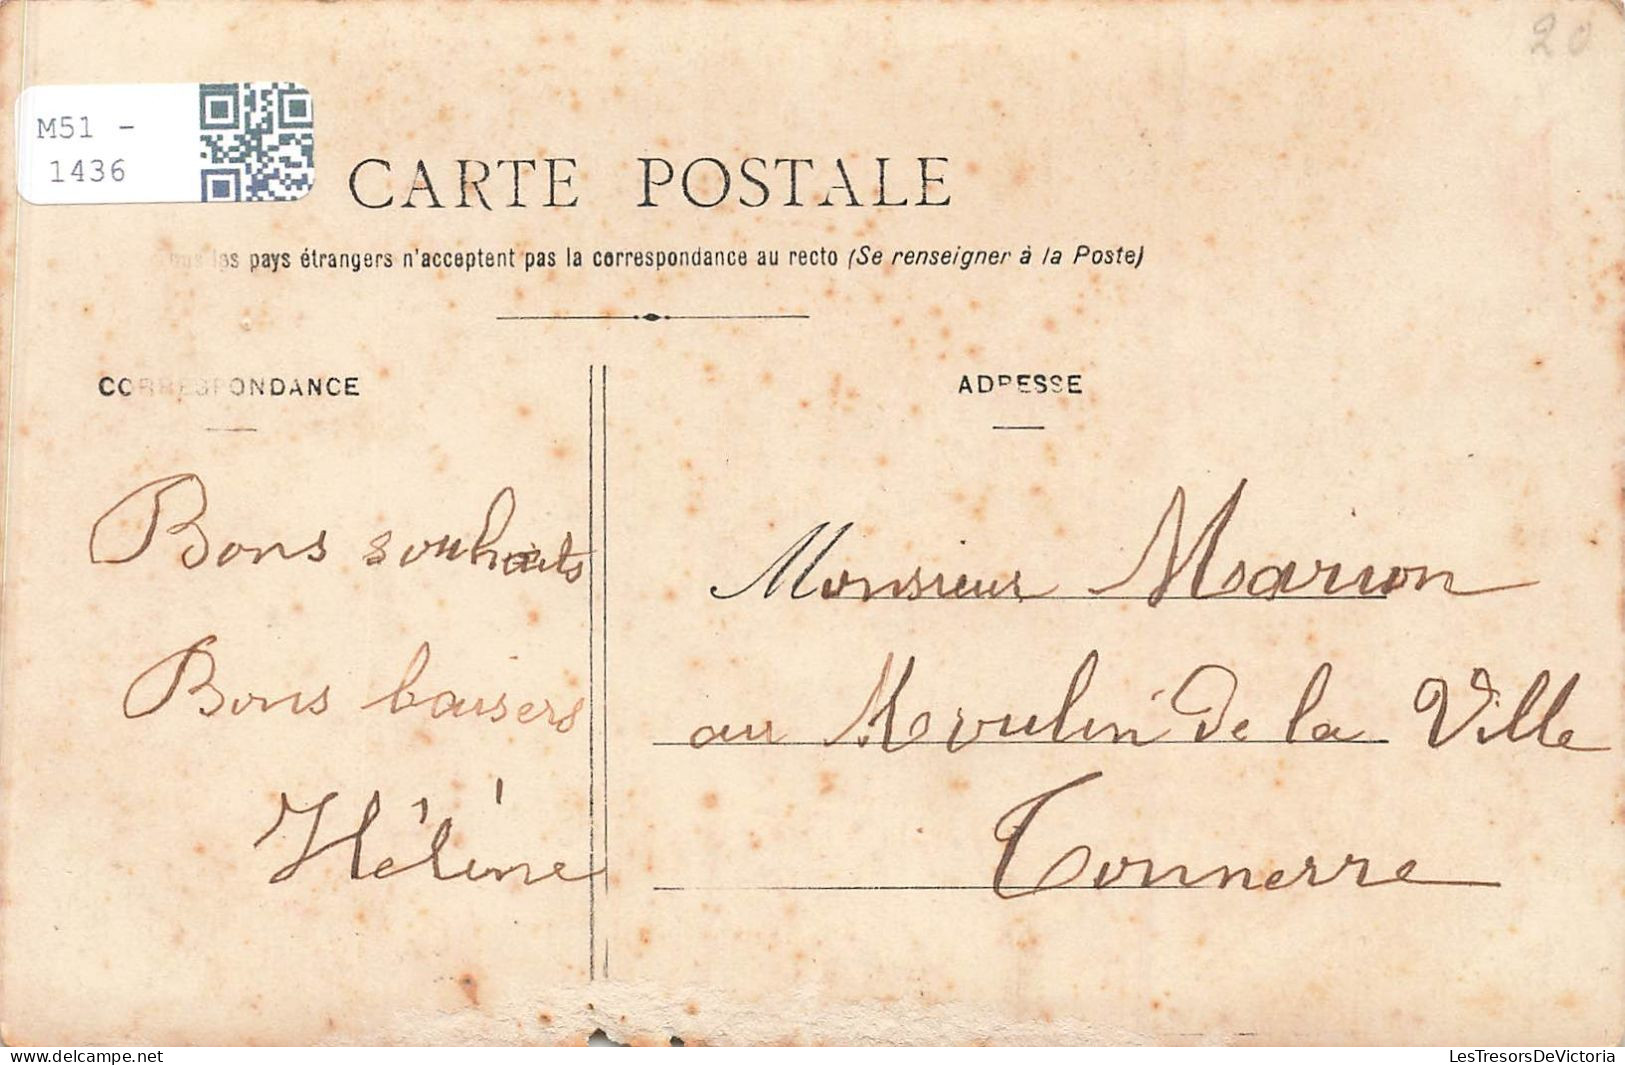 20
M51 -
1436
CARTE POSTALE
Tous les pays étrangers n'acceptent pas la correspondance au recto (Se renseigner à la Poste)
CORRESPONDANCE
ADRESSE
Bons souhaits
Bons baisers
Hélène
Monsieur Marion
au Moulin de la Ville
Tonnerre
M51-1436
LesTresorsDeVictoria